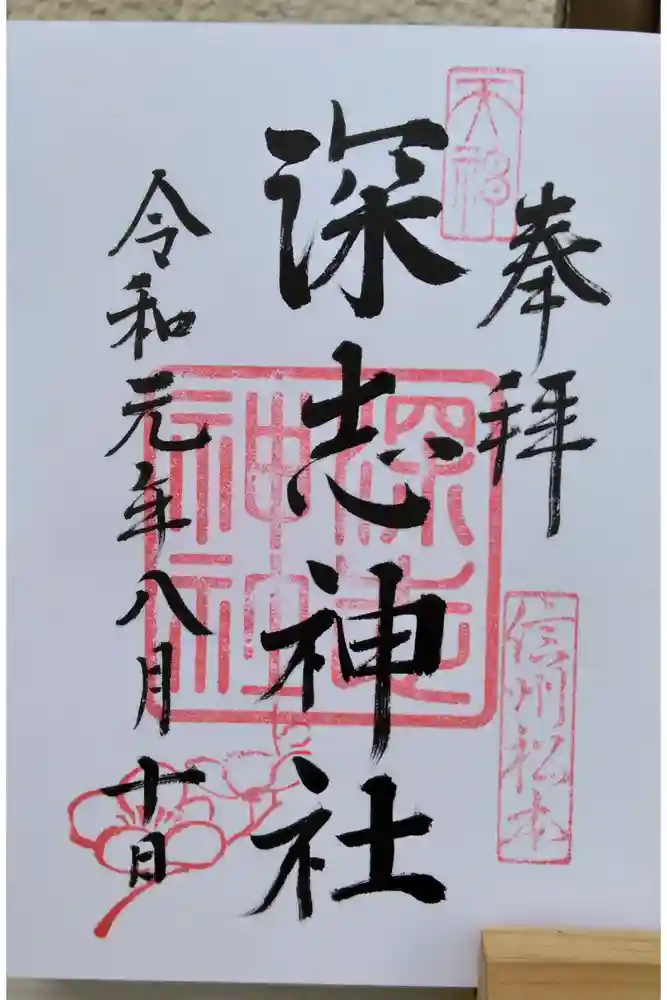 天神
奉拝
信州松本
深志神社
深志
神社
令和元年八月十日